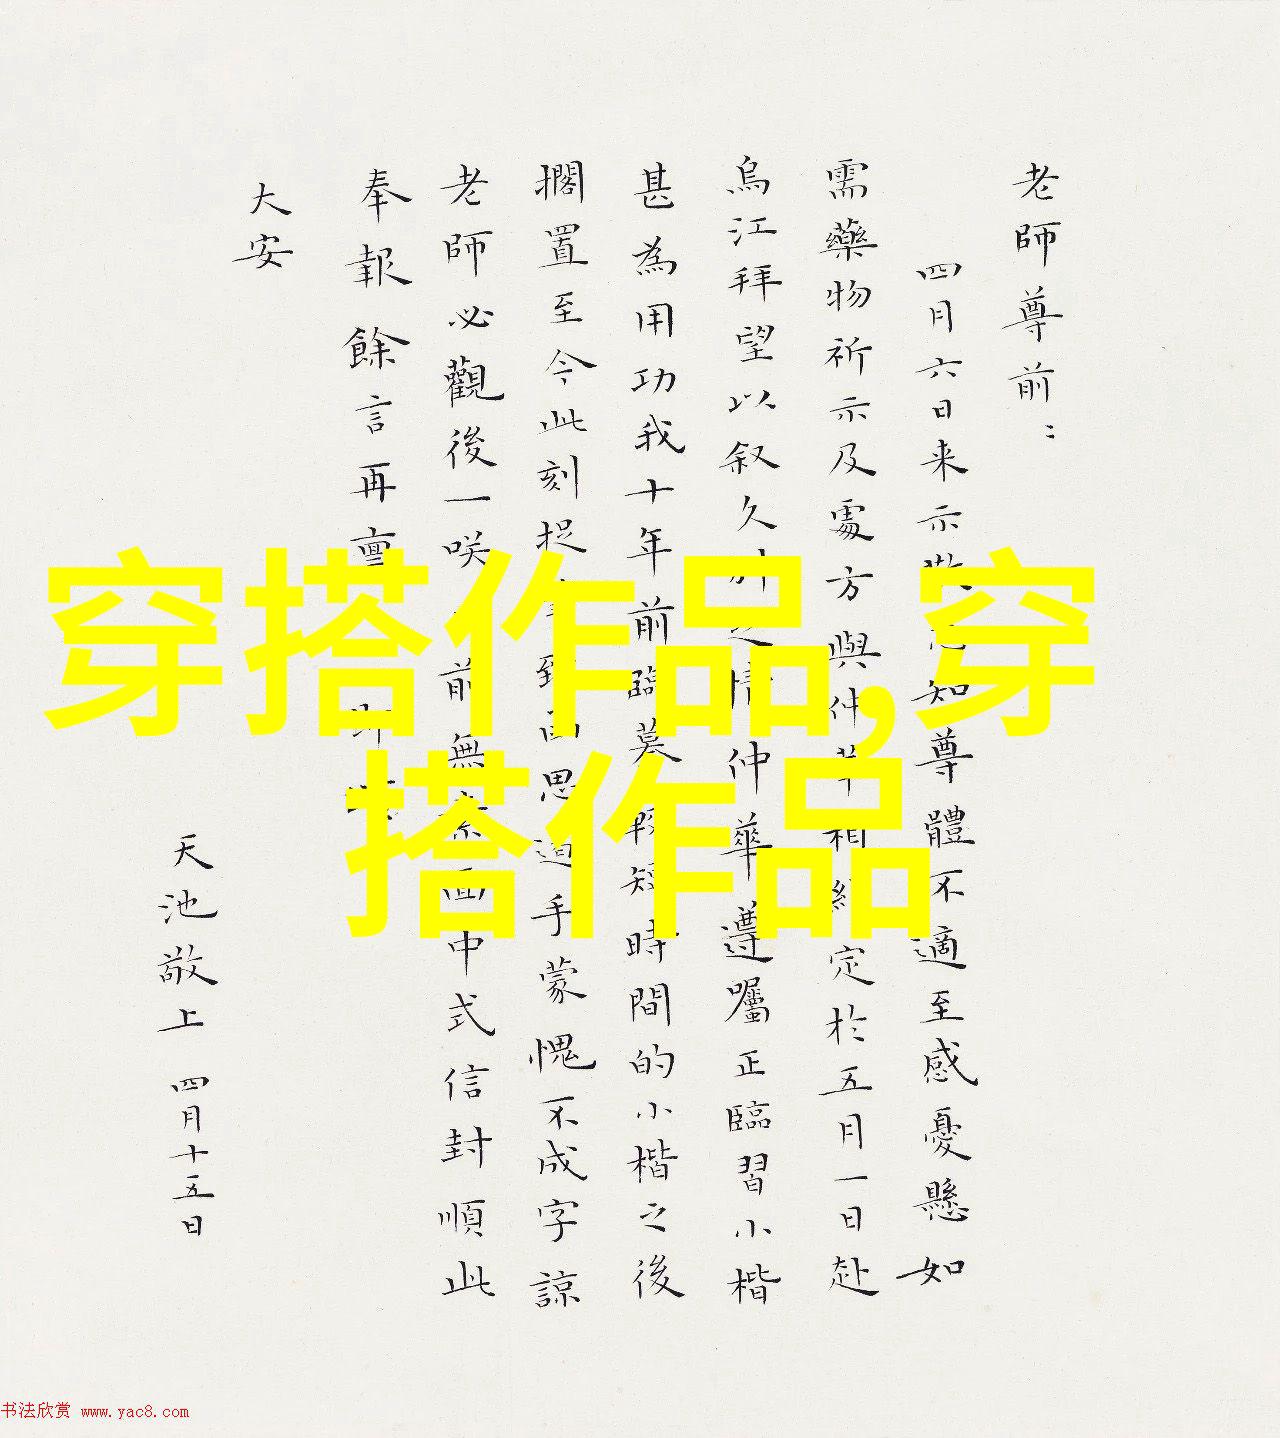 老師尊前：
四月六日来示敬悉知尊體不適至感憂懸如
需藥物祈示及處方與仲華相約定於五月一日赴
烏江拜望以叙久別之情仲華遵囑正臨習小楷
甚為用功我十年前臨摹較短時間的小楷之後
擱置至今此刻捉筆到画思迫手蒙愧不成字諒
老師必觀後一咲前無素面中式信封順此
奉報餘言再稟
大安
天池敬上 四月十五日
穿搭作品,穿
搭作品
书法欣赏 www.yac8.com